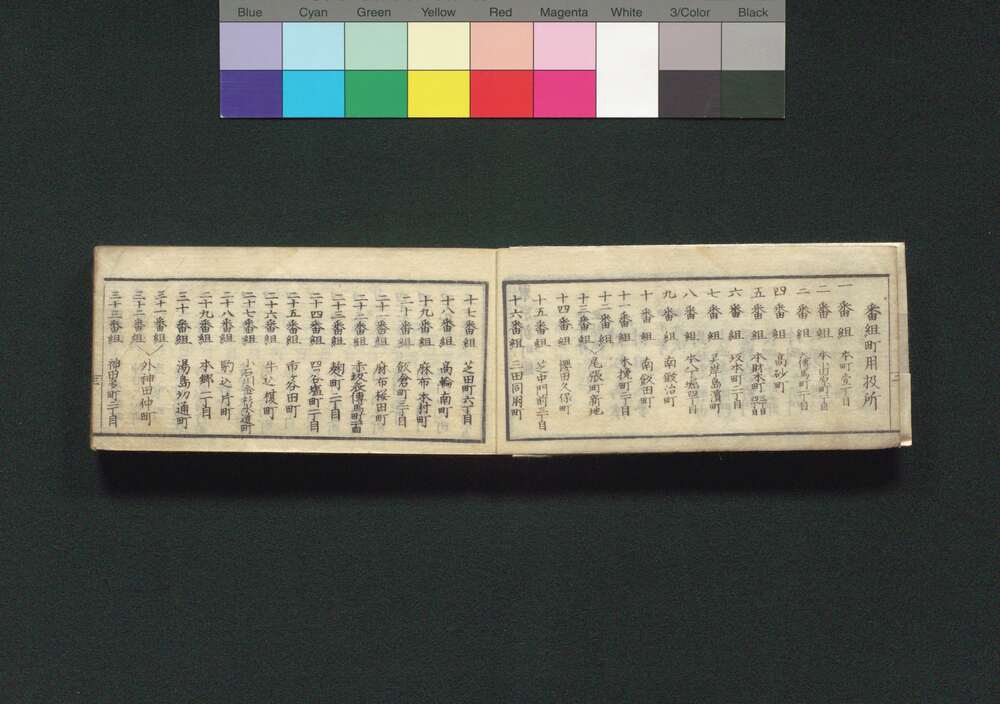 Blue Cyan Green Yellow Red Magenta White 3/Color Black
番組町用扱所
一番組 本町壹丁目
二番組
三番組
四番組 高砂町
五番組 本財木町四丁目
六番組 坂本町二丁目
七番組 霊岸島濱町
八番組 本八丁堀四丁目
九番組 南鍛冶町
十番組 南飯田町
十一番組 木挽町二丁目
十二番組
十三番組 尾張町新地
十四番組 櫻田久保町
十五番組 芝中門前二丁目
十六番組 三田同朋町
十七番組 芝田町六丁目
十八番組 高輪南町
十九番組 麻布本村町
二十番組 飯倉町三丁目
二十一番組 麻布桜田町
二十二番組 赤坂傳馬町二丁目
二十三番組 麹町二丁目
二十四番組 四ツ谷塩町二丁目
二十五番組 市ヶ谷田町
二十六番組 牛込榎町
二十七番組 小石川金杉水道町
二十八番組 駒込片町
二十九番組 本郷二丁目
三十番組 湯島切通町
三十一番組
三十二番組 外神田仲町
三十三番組 神田多町二丁目
三